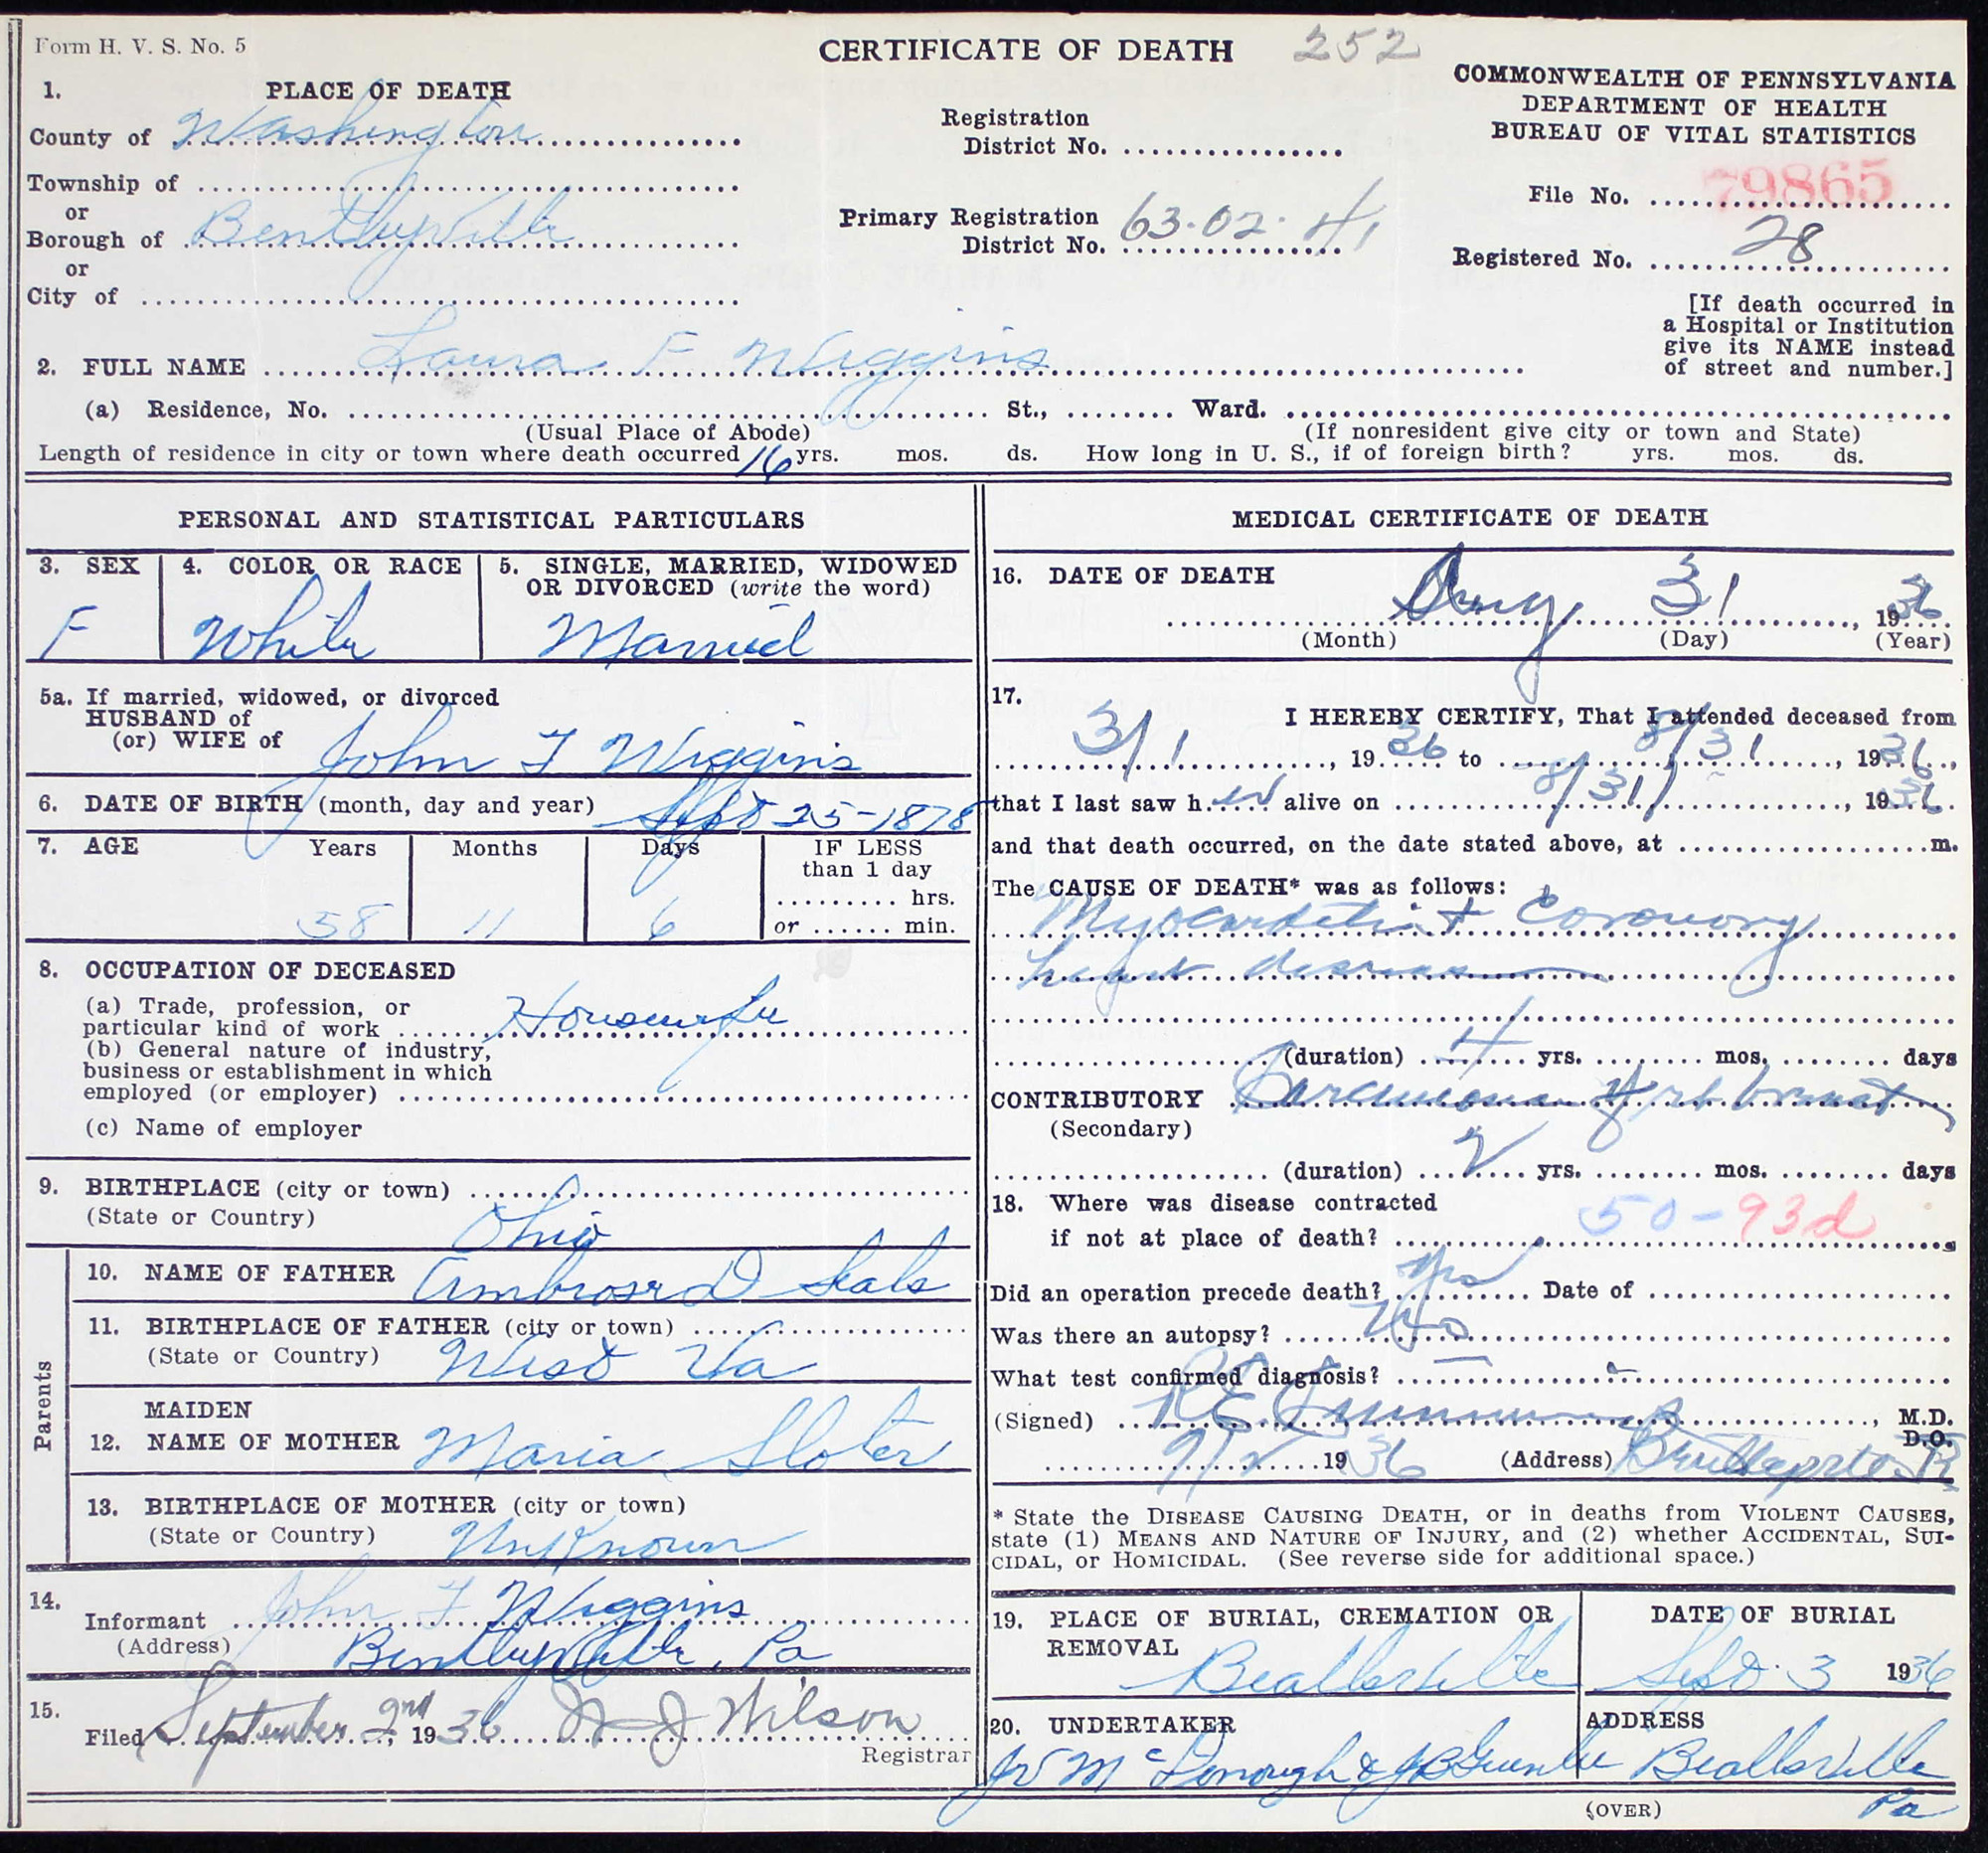 Form H. V. S. No. 5
CERTIFICATE OF DEATH 252
COMMONWEALTH OF PENNSYLVANIA
DEPARTMENT OF HEALTH
BUREAU OF VITAL STATISTICS
1. PLACE OF DEATH
County of Washington
Township of
or
Borough of Bentleyville
or
City of
Registration
District No.
Primary Registration
District No. 63-02-41
File No. 79865
Registered No. 28
[If death occurred in
a Hospital or Institution
give its NAME instead
of street and number.]
2. FULL NAME Laura F Wiggins
(a) Residence, No. St., Ward.
(Usual Place of Abode) (If nonresident give city or town and State)
Length of residence in city or town where death occurred 16 yrs. mos. ds. How long in U. S., if of foreign birth? yrs. mos. ds.
PERSONAL AND STATISTICAL PARTICULARS
3. SEX
F
4. COLOR OR RACE
White
5. SINGLE, MARRIED, WIDOWED
OR DIVORCED (write the word)
Married
5a. If married, widowed, or divorced
HUSBAND of
(or) WIFE of John F Wiggins
6. DATE OF BIRTH (month, day and year) Sept 25-1878
7. AGE Years Months Days IF LESS
than 1 day
hrs.
58 11 6 or min.
8. OCCUPATION OF DECEASED
(a) Trade, profession, or
particular kind of work Housewife
(b) General nature of industry,
business or establishment in which
employed (or employer)
(c) Name of employer
9. BIRTHPLACE (city or town)
(State or Country) Ohio
Parents
10. NAME OF FATHER Ambrose D Seals
11. BIRTHPLACE OF FATHER (city or town)
(State or Country) West Va
MAIDEN
12. NAME OF MOTHER Maria Sloter
13. BIRTHPLACE OF MOTHER (city or town)
(State or Country) UnKnown
14.
Informant John F Wiggins
(Address) Bentleyville, Pa
15.
Filed September 2nd, 1936 W J Wilson
Registrar
MEDICAL CERTIFICATE OF DEATH
16. DATE OF DEATH
Aug 31, 1936
(Month) (Day) (Year)
17.
I HEREBY CERTIFY, That I attended deceased from
3/1, 1936 to 8/31, 1936,
that I last saw her alive on 8/31, 1936
and that death occurred, on the date stated above, at m.
The CAUSE OF DEATH* was as follows:
Myocarditis + Coronory
heart disease
(duration) 4 yrs. mos. days
CONTRIBUTORY Carcinoma of rt breast
(Secondary)
(duration) 2 yrs. mos. days
18. Where was disease contracted
50-93d
if not at place of death?
Did an operation precede death? Date of
Was there an autopsy? No
What test confirmed diagnosis?
(Signed) R E , M.D.
D.O.
9/2 1936 (Address)
* State the DISEASE CAUSING DEATH, or in deaths from VIOLENT CAUSES,
state (1) MEANS AND NATURE OF INJURY, and (2) whether ACCIDENTAL, SUI-
CIDAL, or HOMICIDAL. (See reverse side for additional space.)
19. PLACE OF BURIAL, CREMATION OR
REMOVAL
Beallsville
DATE OF BURIAL
Sept. 3 1936
20. UNDERTAKER
McDonough &
ADDRESS
Beallsville
Pa
(OVER)